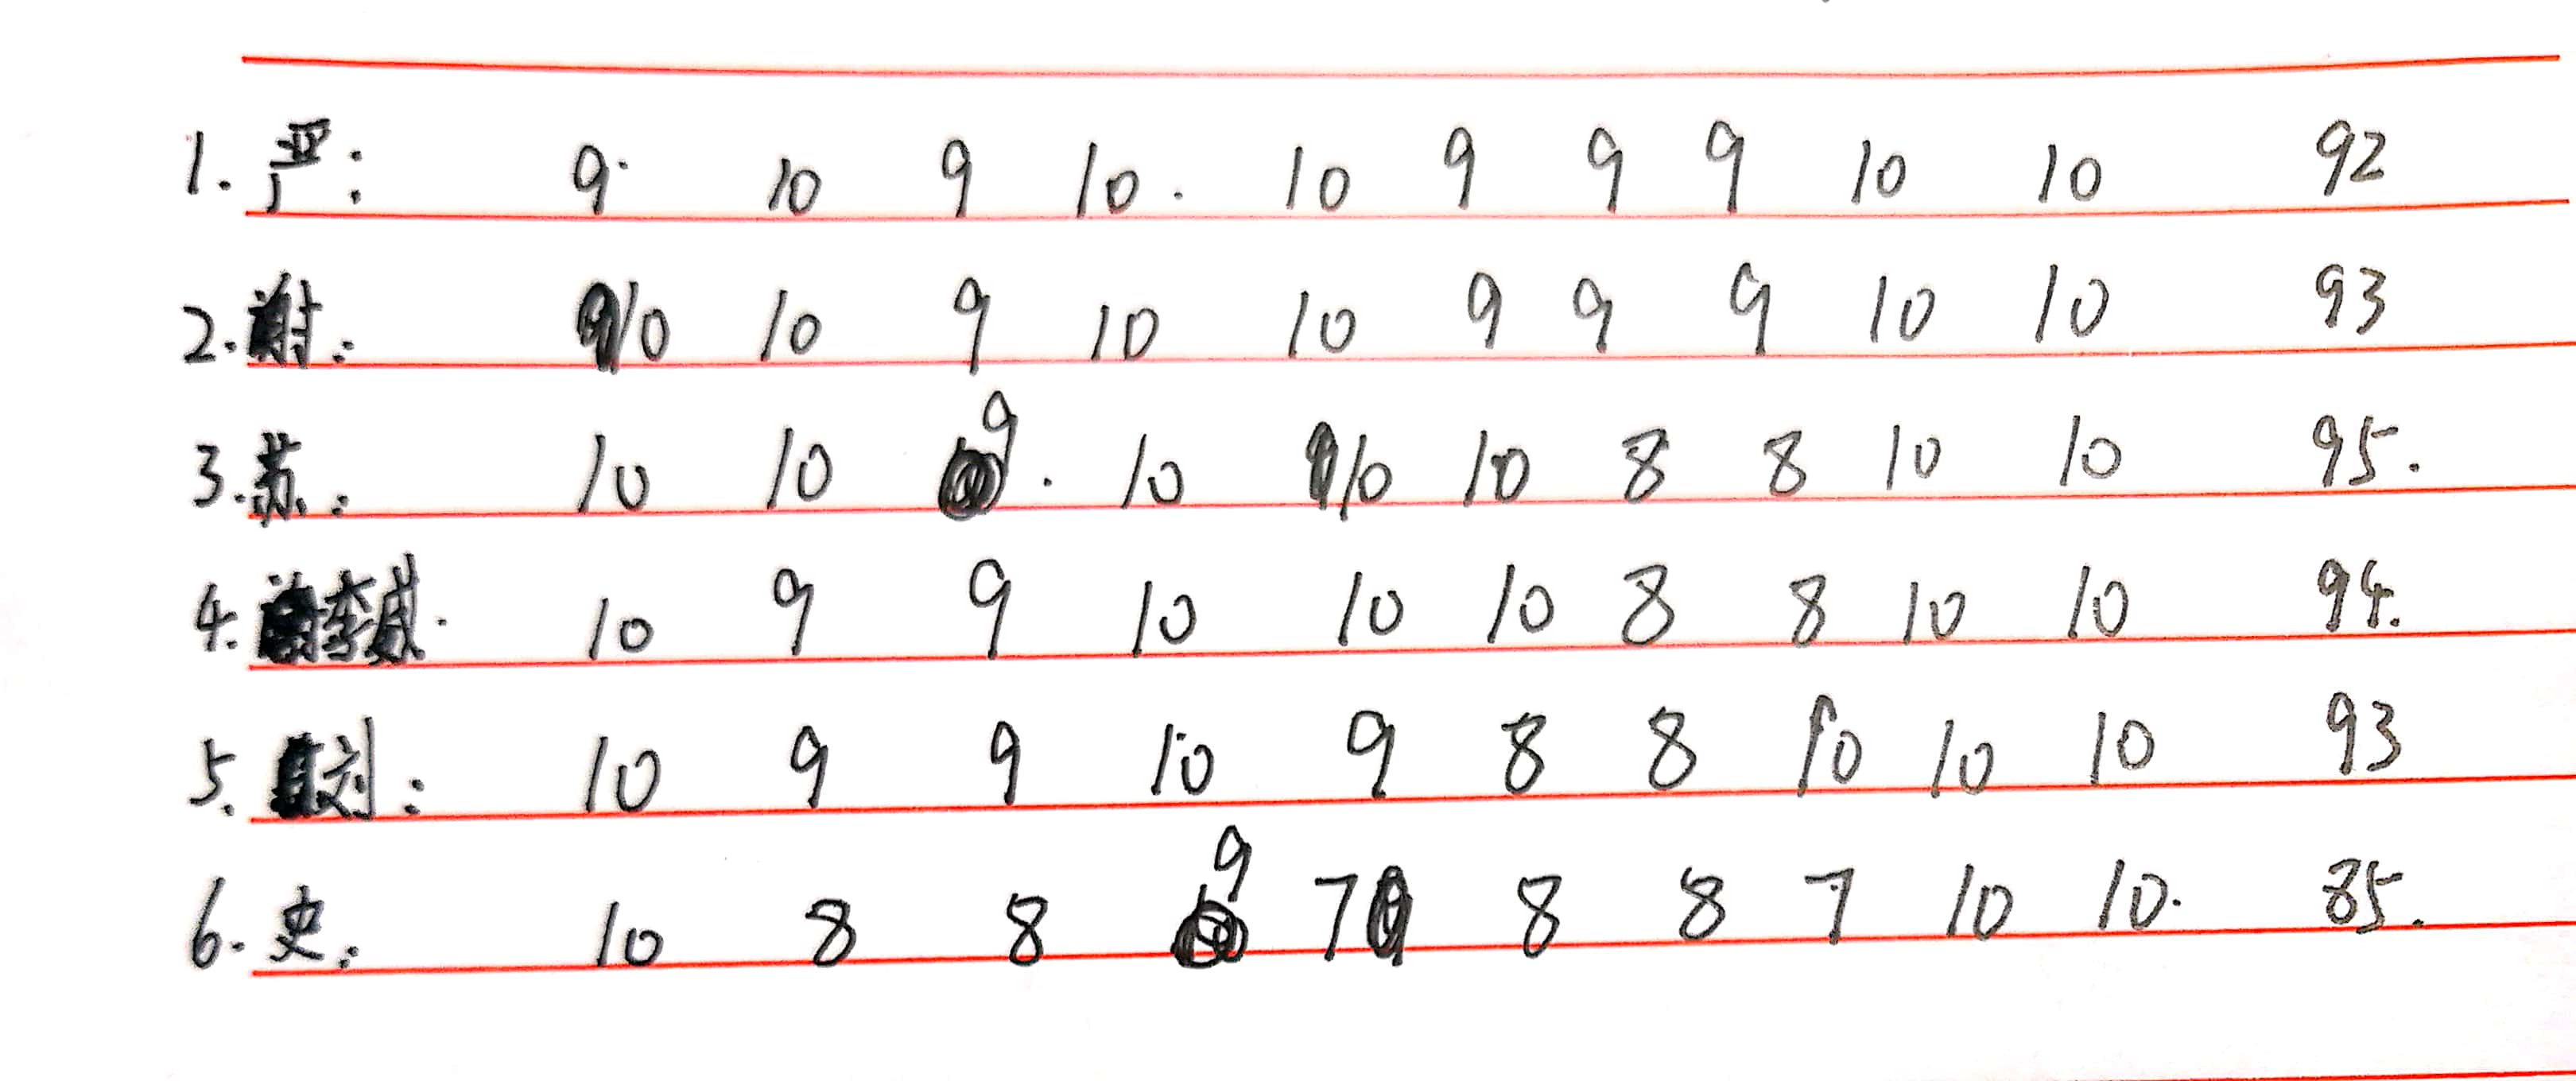 1. 严: 9. 10 9 10. 10 9 9 9 10 10 92
2. 谢: 10 10 9 10 10 9 9 9 10 10 93
3. 苏: 10 10 9. 10 10 10 8 8 10 10 95.
4. 李威. 10 9 9 10 10 10 8 8 10 10 94.
5. 刘: 10 9 9 10 9 8 8 10 10 10 93
6. 史: 10 8 8 9 7 8 8 7 10 10. 85.